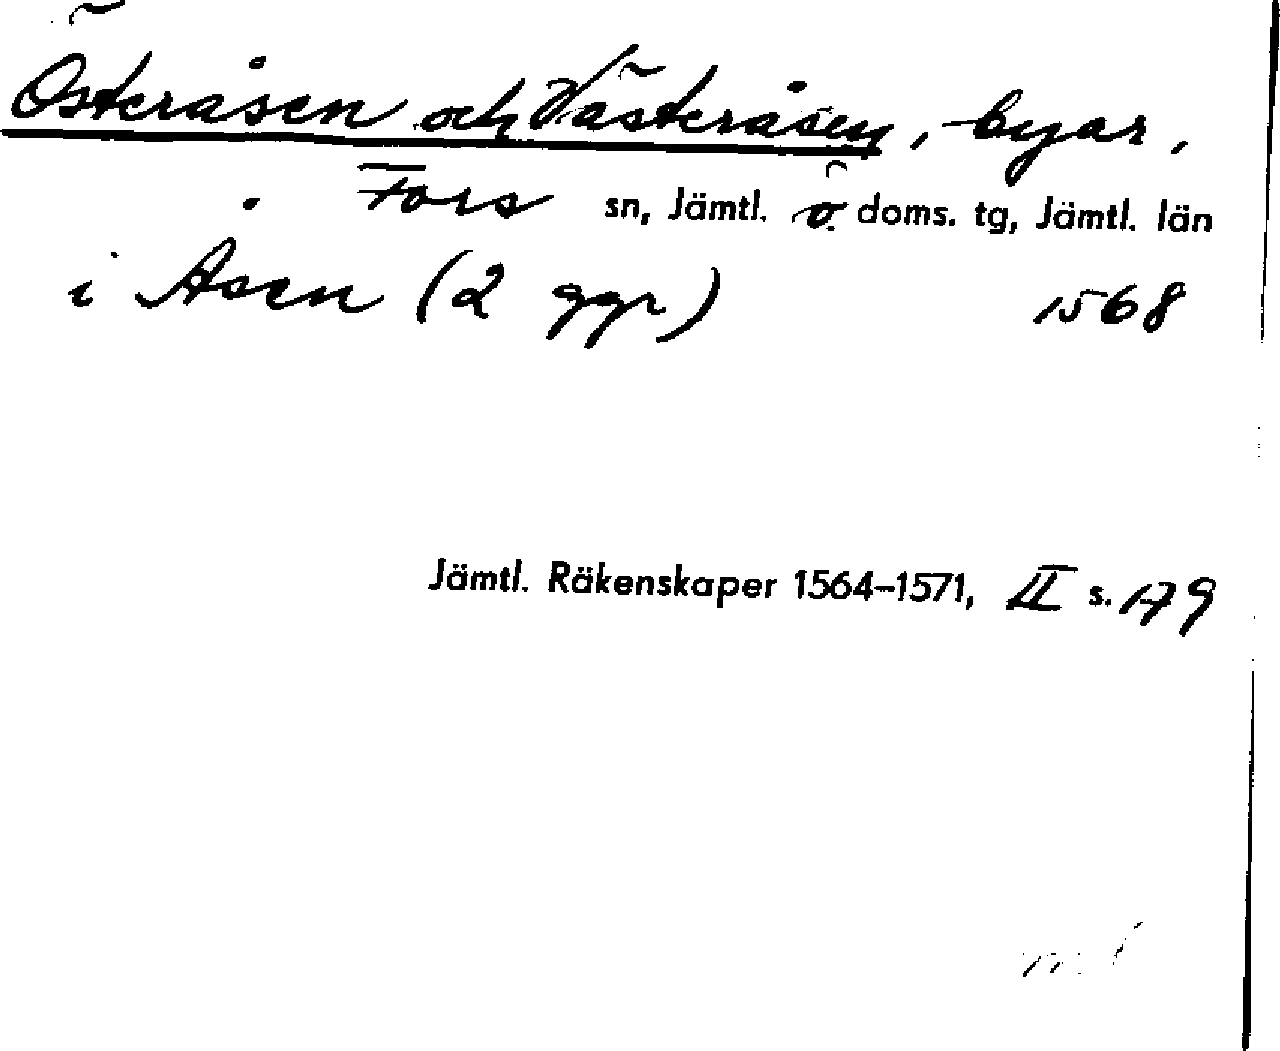 Österåsen och Västeråsen, byar,
Fors sn, Jämtl. ö. doms. tg, Jämtl. län
i Åsen (2 ggr) 1568
Jämtl. Räkenskaper 1564–1571, II s. 179